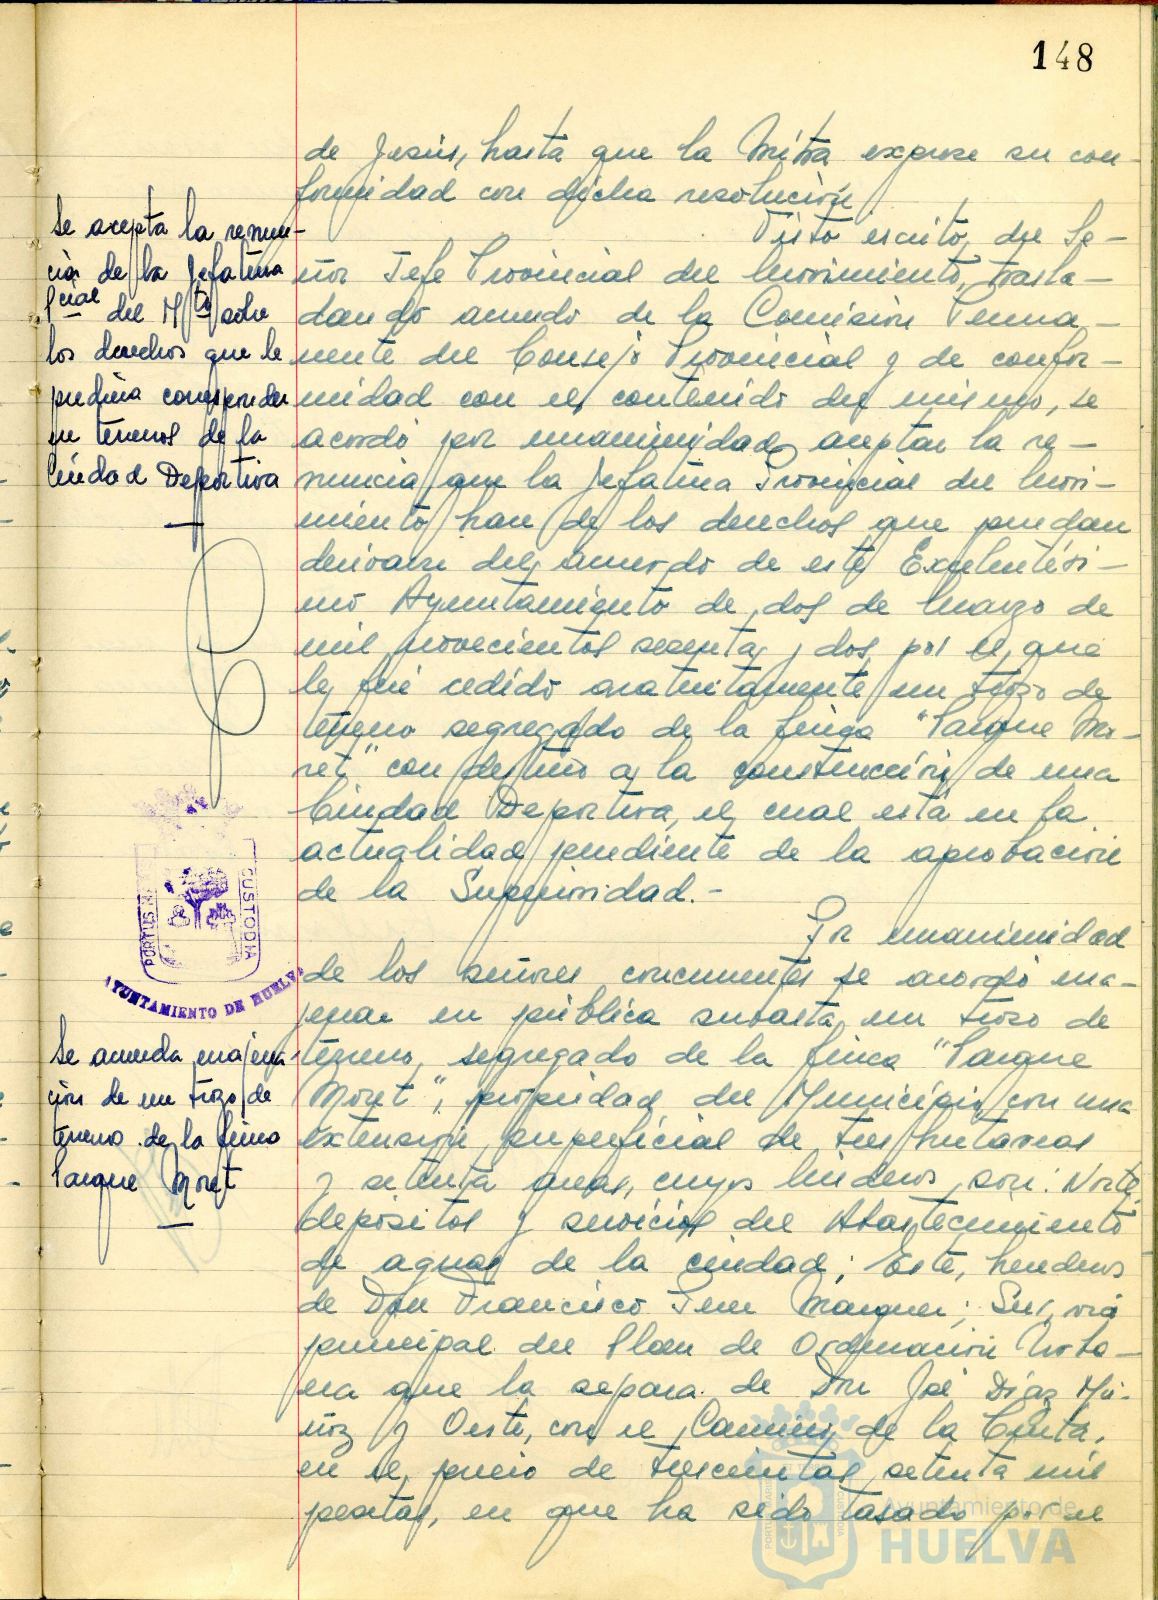 148
de Jesús, hasta que la Mitra exprese su con-
formidad con dicha resolución
Visto escrito del Se-
ñor Jefe Provincial del Movimiento, trasla-
dando acuerdo de la Comisión Perma-
nente del Consejo Provincial y de confor-
midad con el contenido del mismo, se
acordó por unanimidad aceptar la re-
nuncia que la Jefatura Provincial del Movi-
miento hace de los derechos que puedan
derivarse del acuerdo de este Excelentísi-
mo Ayuntamiento de dos de Marzo de
mil novecientos sesenta y dos por el que
le fué cedido gratuitamente un trozo de
terreno segregado de la finca "Parque Mo-
ret" con destino a la construcción de una
Ciudad Deportiva, el cual está en la
actualidad pendiente de la aprobación
de la Superioridad.-
Por unanimidad
de los señores concurrentes se acordó ena-
jenar en pública subasta un trozo de
terreno, segregado de la finca "Parque
Moret", propiedad del Municipio, con una
extensión superficial de tres hectáreas
y setenta áreas, cuyos linderos son: Norte,
depósitos y servicios del Abastecimiento
de aguas de la ciudad; Este, herederos
de Don Francisco Márquez; Sur, vía
principal del Plan de Ordenación Urba-
na que la separa de Don José Díaz Mu-
ñoz y Oeste, con el Camino de la Cinta,
en el precio de trescientas setenta mil
pesetas, en que ha sido tasado por el
Se acepta la renun-
cia de la Jefatura
Pcial del Mto sobre
los derechos que le
pudiera corresponder
en terrenos de la
Ciudad Deportiva
PORTUS MARIS
CUSTODIA
AYUNTAMIENTO DE HUELVA
Se acuerda enajena-
ción de un trozo de
terreno de la finca
Parque Moret
Ayuntamiento de
HUELVA